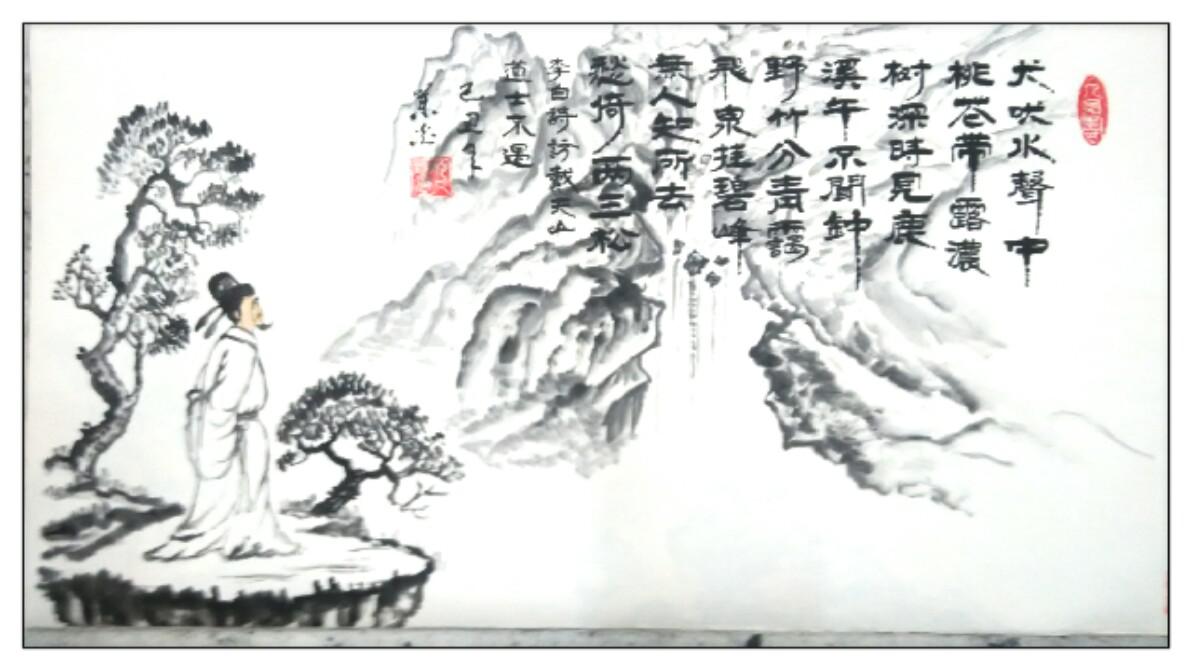 犬吠水聲中
桃花帶露濃
树深時見鹿
溪午不聞鈡
野竹分青靄
飛泉挂碧峰
無人知所去
愁倚两三松
李白詩訪戴天山
道士不遇
己丑